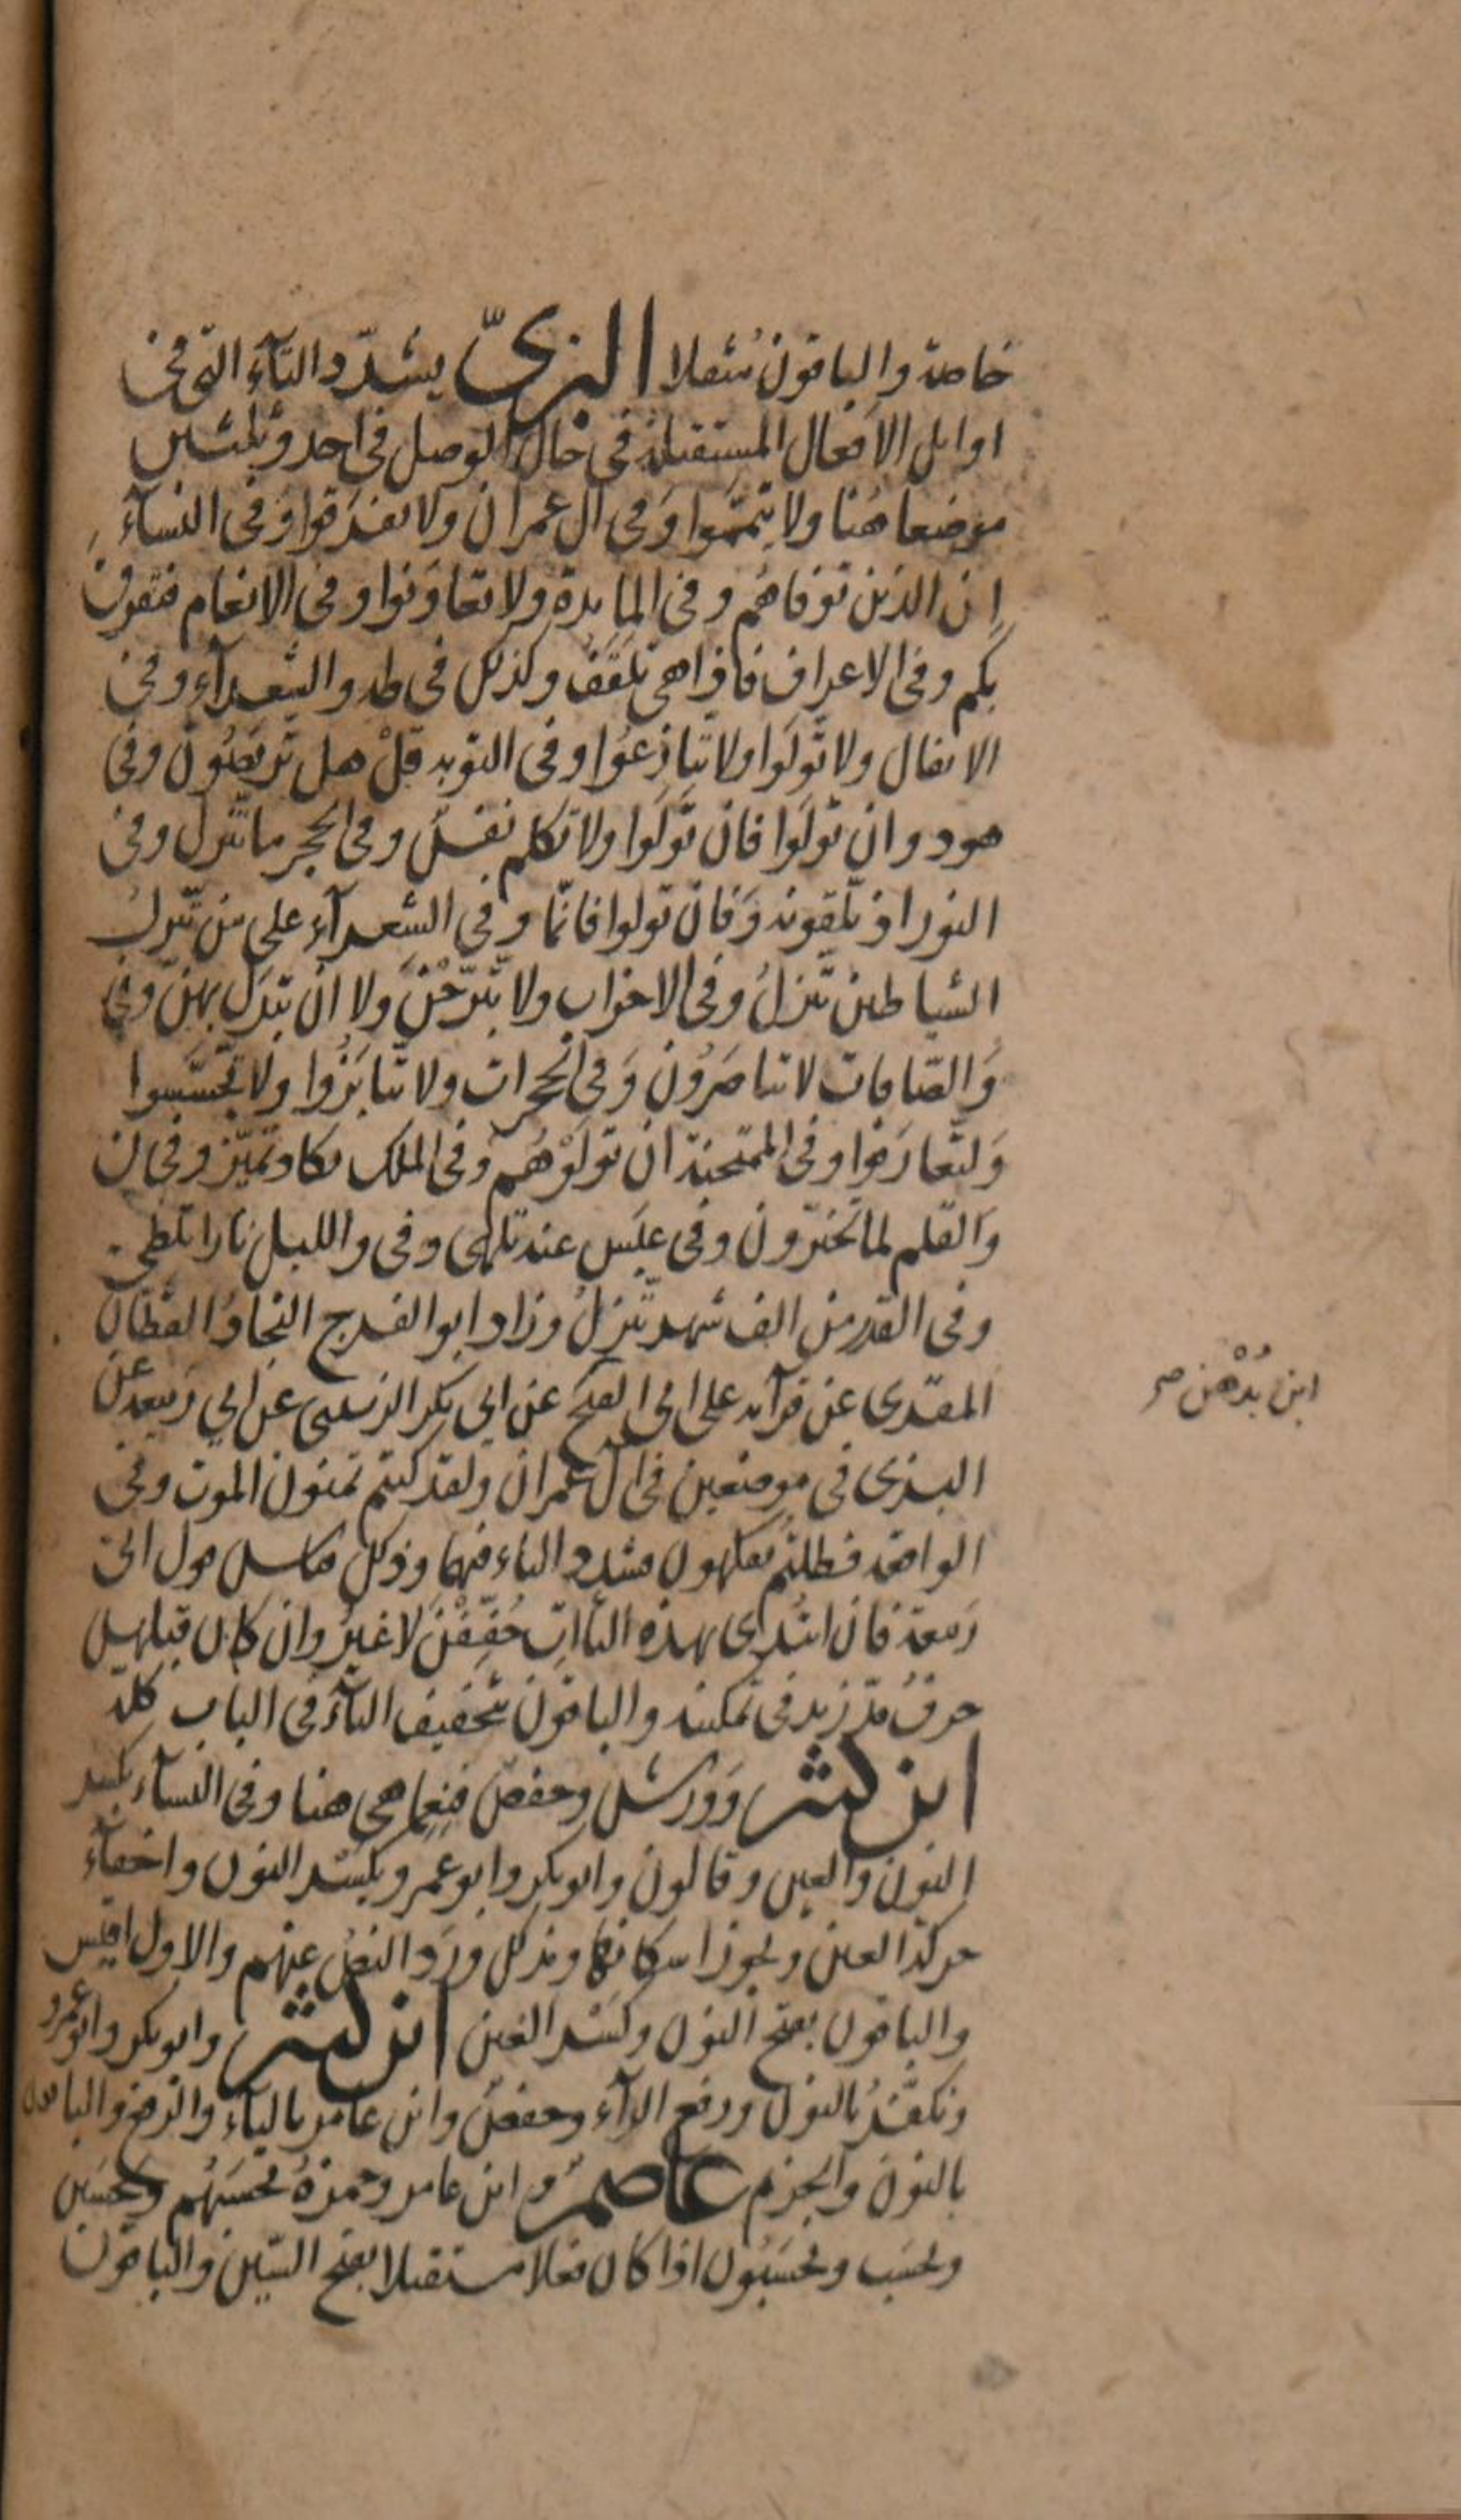 خاصة والباقون مثقلا البزىّ يشدّد التآء التى فى
اوايل الافعال المستقبلة فى حال الوصل فى احد وثلثين
موضعا هُنا ولا تيّمموا وَفى ال عمران ولا تفرقوا وَفى النسآء
ان الذين توفاهُم وفى المايدة ولا تعاوَنوا وفى الانعام فتفرق
بكم وفى الاعراف فاذا هى تلقَّفُ وكذلك فى طه والشعرآء وفى
الانفال ولا تّولَوا ولا تّنازعُوا وفى التوبه قلْ هل تّربصُون وفى
هود وان تّولَوا فان تّولَوا ولا تكلم نفسٌ وفى الحجر ما تنّزل وفى
النور اذ تّلقونه وَفان تولوا فانمّا وفى الشعرآء على من تنّزلُ
الشياطين تنّزلُ وفى الاحزاب ولا تّبرّجْنَ ولا ان تبّدّل بهنّ وفى
وَالصّافات لا تناصَرُون وَفى الحجرات ولا تّنابَزُوا ولا تّجسَّسوا
وَلتّعارَفوا وفى الممتحنة ان تولّوْهُم وفى الملك تكاد تّميّز وفى ن
وَالقلم لما تّخيّرون وفى عبَس عنه تّلهى وفى والليل نارا تلظى
وفى القدر من الف شهر تنّزلُ وزاد ابو الفرج النجادُ القطّان
المقرى عن قرآءه على ابى الفتح عن ابي بكر الزينبى عن ابي رَبيعة عن
البزى فى موضعين فى ال عمران ولقد كنتم تمنون الموت وفى
الواقعه فظلتُم تفكهون فشدد التاء فيهما وذلك قياسُ قول ابى
رَبيعة فان ابتُدى بهذه التاآت خُفِّفْنَ لا غيرُ وان كان قبلهن
حرفُ مدّ زيد فى تمكينه والباقون بتخفيف التآء فى الباب كلّه
ابن كثير وَورش وحفصٌ فنِعِما هى هنا وفى النسآء بكسر
النون والعين وقالون وابو بكر وابو عمرو بكسر النون واخفآء
حركة العين وبجوز اسكانها وبذلك وَرَد النصُ عنهم والاول اقيس
والباقون بفتح النون وكسر العين ابن كثير وابو بكر وابو عمرو
ونكفّرُ بالنون ورفع الرآء وحفصٌ وابن عامر بالياء والرفع والباقون
بالنون وَالجزم عاصمٌ وابن عامر وحمزةُ تحسَبهُم وتحسَبن
وتحسَب وتحسَبُون اذا كان فعلا مستقبلا بفتح السّين والباقون
ابن بُدْهُن صح